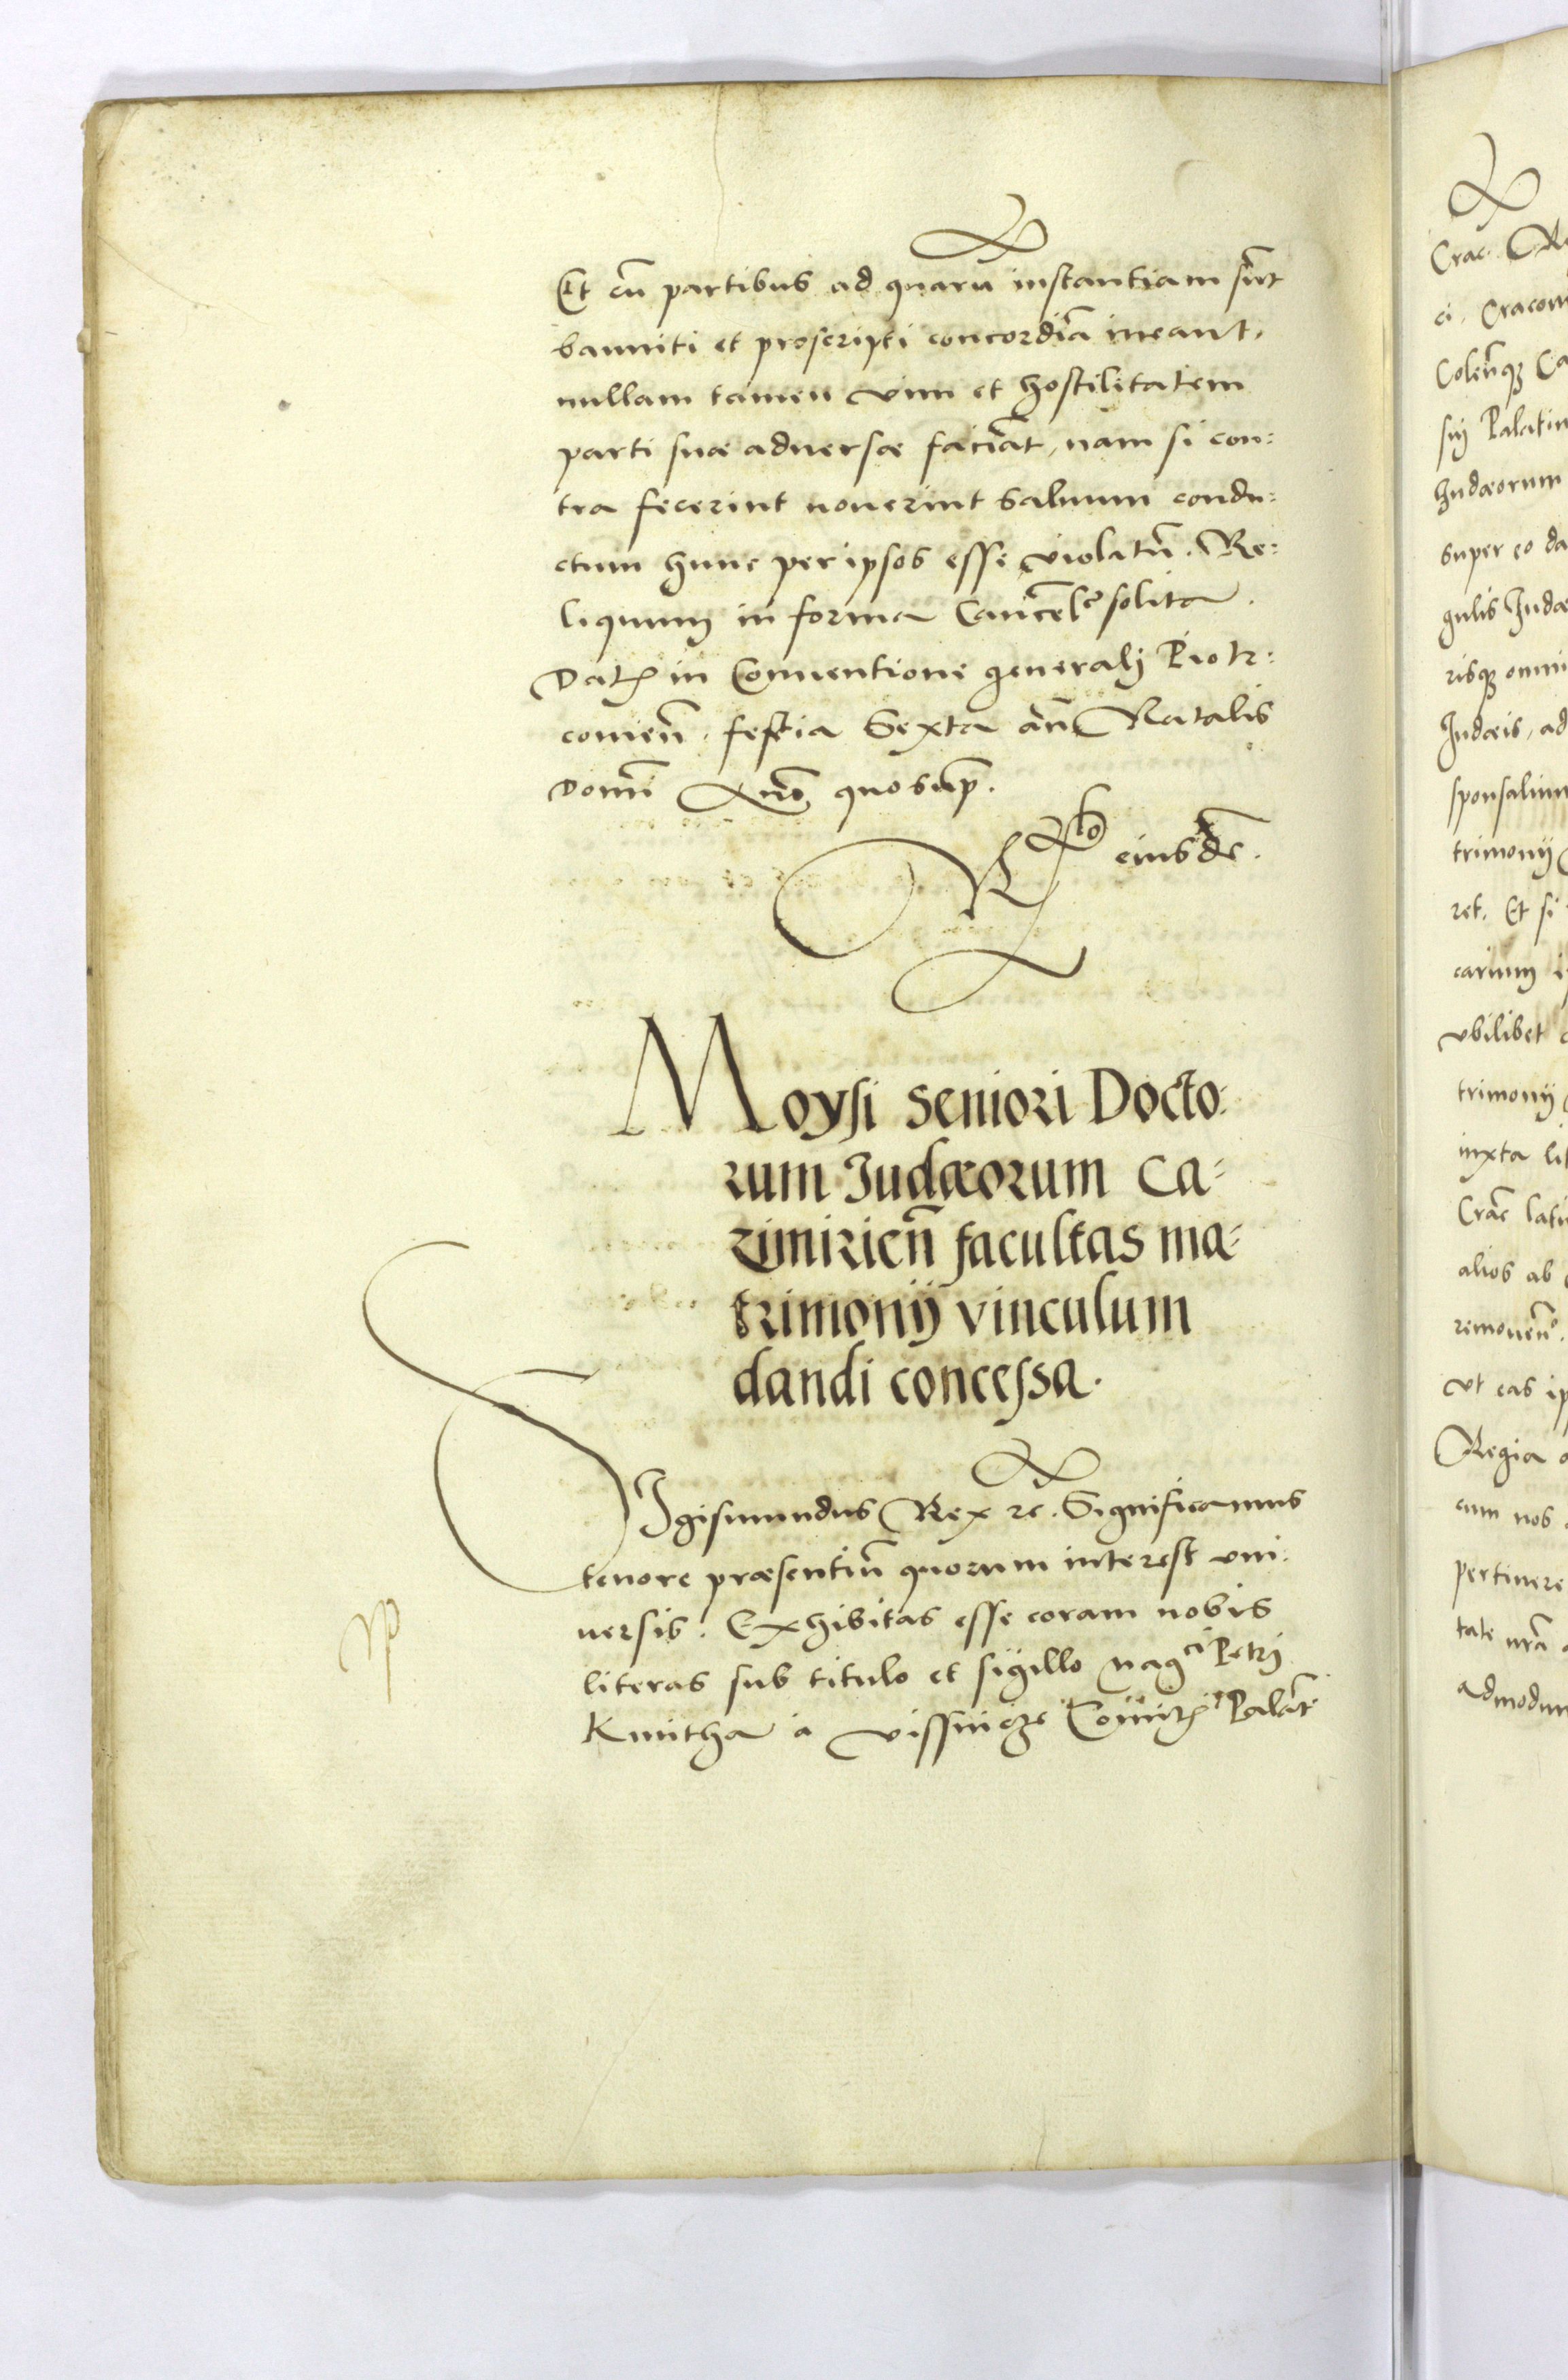 Et cū partibus ad quarū instantiam sūt
banniti et proscripti concordiā ineant,
nullam tamen vim et hostilitatem
parti suæ aduersæ faciāt, nam si con:
tra fecerint nouerint saluum condu:
ctum hunc per ipsos esse violatū. Re:
liquum in forma Cancel̄ solita.
Dat in Conuentione generalj Piotr:
comien̄. feria Sexta an̄ Natalis
Domi Anō quo sup.
R eiusdē.
Moysi seniori Docto:
rum Judæorum Ca:
zimirien̄ facultas ma:
trimonij vinculum
dandi concessa.
SIgismundus Rex ꝛc. Significamus
tenore præsentiū quorum interest vni:
uersis. Exhibitas esse coram nobis
literas sub titulo et sigillo Magci Petrj
Kmitha a Vissnicze Comit Palat
Crac.
ci. Cracouı
Colenq; Ca
sij Palatin
Judæorum
super eo da
gulis Judæ
risq; omni
Judæis, ad
sponsalium
trimonij
ret. Et si
carium i
vbilibet
trimonij
iuxta lit
Crac̄ lati
alios ab
remouen̄
vt eas ip
Regia
cum nos
pertinere
tate nrā
admodum